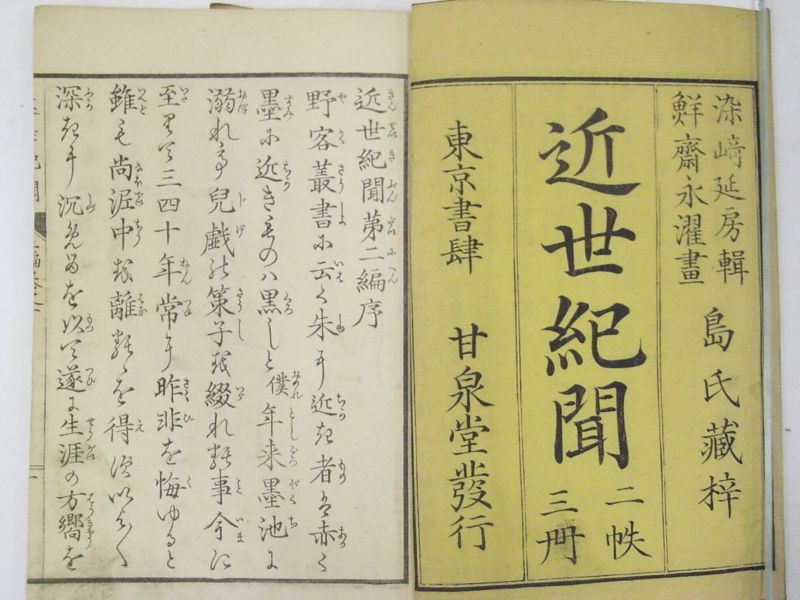 染﨑延房輯
鮮齋永濯畫
島氏藏梓
近世紀聞
二帙
三冊
東京書肆
甘泉堂發行
近世紀聞第二編序
野客叢書に云く朱に近き者は赤く
墨に近きものハ黒しと僕年来墨池に
溺れて兒戯の策子を綴れる事今に
至りて三四十年常に昨非を悔ゆると
雖も尚泥中を離るゝを得ず以
深き沉を以て遂に生涯の方嚮を